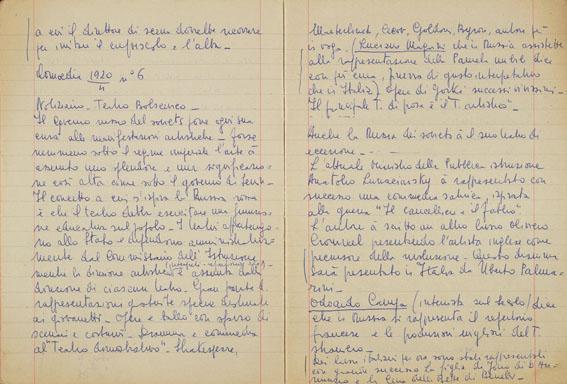 a cui il direttore di scena dovrebbe ricorrere
per imitare il crepuscolo e l'alba -
Comoedia 1920/4 n° 6
Notiziario - Teatro Bolscevico -
Il governo russo dei soviets pone ogni sua
cura alle manifestazioni artistiche - forse
nemmeno sotto il regime imperiale l'arte à
assunto uno splendore e una significazio-
ne così alta come sotto il governo di Lenin -
Il concetto a cui s'ispira la Russia rossa
è che il teatro debba esercitare una funzione
educativa sul popolo - I teatri appartengo-
no allo Stato e dipendono amministrativa-
mente dal Commissario dell'Istruzione
mentre la direzione artistica è assunta dalla
direzione di ciascun teatro - Gran parte di
rappresentazioni gratuite specie destinate
ai giovanetti - Opere e ballo con sfarzo di
scenari e costumi - Dramma e commedia
al "Teatro dimostrativo" - Shakespeare,
Maeterlinck, Goldoni, Byron, autori
(Luciano che in Russia assistette
alla rappresentazione della Pamela nubile dice
con più cura, presso di gusto interpretativo
che in Italia) opere di Gorki successi vivissimi -
Il principale T. di prosa è il T. artistico" -
Anche la Russia dei soviets à il suo teatro di
eccezione - . . .
L'attuale Ministro della Pubblica istruzione
Anatolio Lunaciarsky à rappresentato con
successo una commedia satirica, ispirata
alla guerra "Il cancelliere e il fabbro"
L'autore à scritto un altro lavoro Oliviero
Cromwel presentando l'artista inglese come
precursore della rivoluzione - Questo dramma
sarà presentato in Italia da Uberto Palma-
rini -
Odoardo (intervista sul Secolo) dice
che in Russia si rappresenta il repertorio
francese e le produzioni migliori del T.
straniero -
Dei lavori italiani per ora sono stati rappresentati
con grande successo La figlia di Jorio di d'An-
nunzio e la Cena delle Beffe di Benelli -